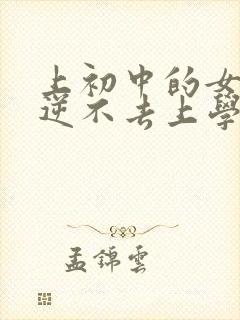 上初中的女
逆不去上學
孟錦雲